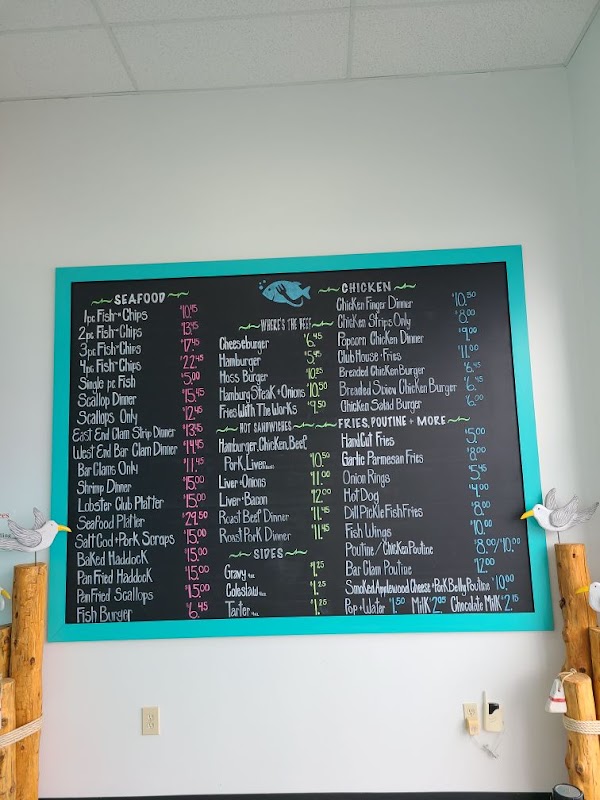 SEAFOOD
1pc Fish + Chips $10.45
2pc Fish + Chips $13.45
3pc Fish + Chips $17.45
4pc Fish + Chips $22.45
Single pc Fish $5.00
Scallop Dinner $15.45
Scallops Only $12.45
East End Clam Strip Dinner $13.45
West End Bar Clam Dinner $14.45
Bar Clams Only $11.45
Shrimp Dinner $15.00
Lobster Club Platter $15.00
Seafood Platter $29.50
Salt Cod + Pork Scraps $15.00
Baked Haddock $15.00
Pan Fried Haddock $15.00
Pan Fried Scallops $15.00
Fish Burger $6.45
WHERE'S THE BEEF
Cheeseburger $6.45
Hamburger $5.45
Hoss Burger $10.25
Hamburg Steak + Onions $10.50
Fries With The Works $9.50
HOT SANDWICHES
Hamburger, Chicken, Beef,
Pork, Liver $10.50
Liver + Onions $11.00
Liver + Bacon $12.00
Roast Beef Dinner $11.45
Roast Pork Dinner $11.45
SIDES
Gravy 4oz $1.25
Coleslaw 4oz $1.25
Tarter 4oz $1.25
CHICKEN
Chicken Finger Dinner $10.50
Chicken Strips Only $8.00
Popcorn Chicken Dinner $9.00
Club House + Fries $11.00
Breaded Chicken Burger $6.45
Breaded Chicken Burger $6.45
Chicken Salad Burger $6.00
FRIES, POUTINE + MORE
Hand Cut Fries $5.00
Garlic Parmesan Fries $8.00
Onion Rings $5.45
Hot Dog $4.00
Dill Pickle Fish Fries $8.00
Fish Wings $10.00
Poutine / Chicken Poutine $8.00/10.00
Bar Clam Poutine $12.00
Smoked Applewood Cheese + Pork Belly Poutine $10.00
Pop + Water $1.50 Milk $2.05 Chocolate Milk $2.15